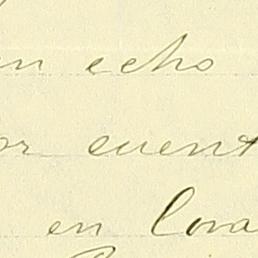 n echo
or cuent
en Cora